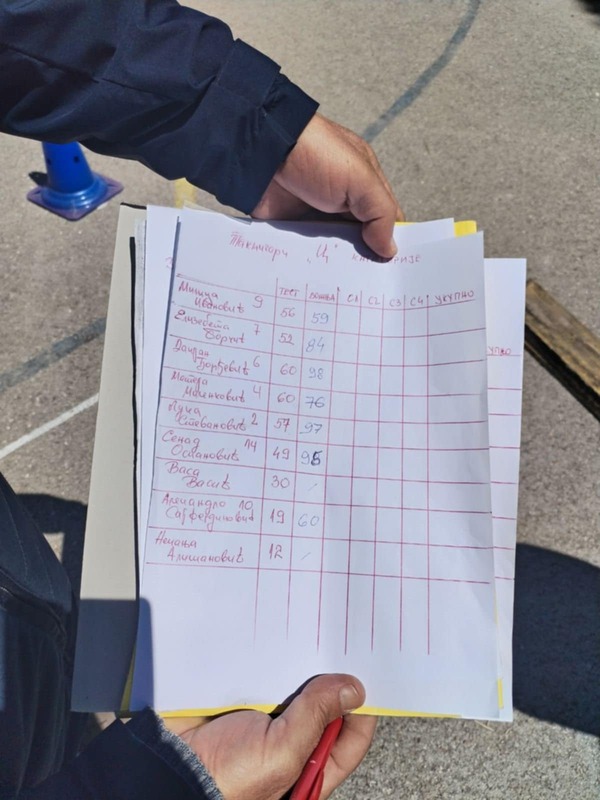 Такмичари „Ц" КАТЕГОРИЈЕ
ТЕСТ ВОЖЊА С1 С2 С3 С4 УКУПНО
Милица 9 56 59
Ивановић
Елизабета 7 52 84
Дајан 6 60 98
Ђорђевић
Матеја 4 60 76
Миленковић
Луна 2 57 97
Стевановић
Сенад 14 49 95
Османовић
Васа 30 /
Васић
Алехандро 10 19 60
Немања 12 /
Алишановић
УПНО